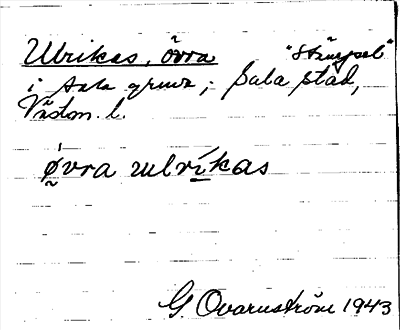 Ulrikas, övra "Stämpel"
i Sala gruva; Sala stad,
Västm. l.
ǿvra ulríkas
G. Ovarnström 1943